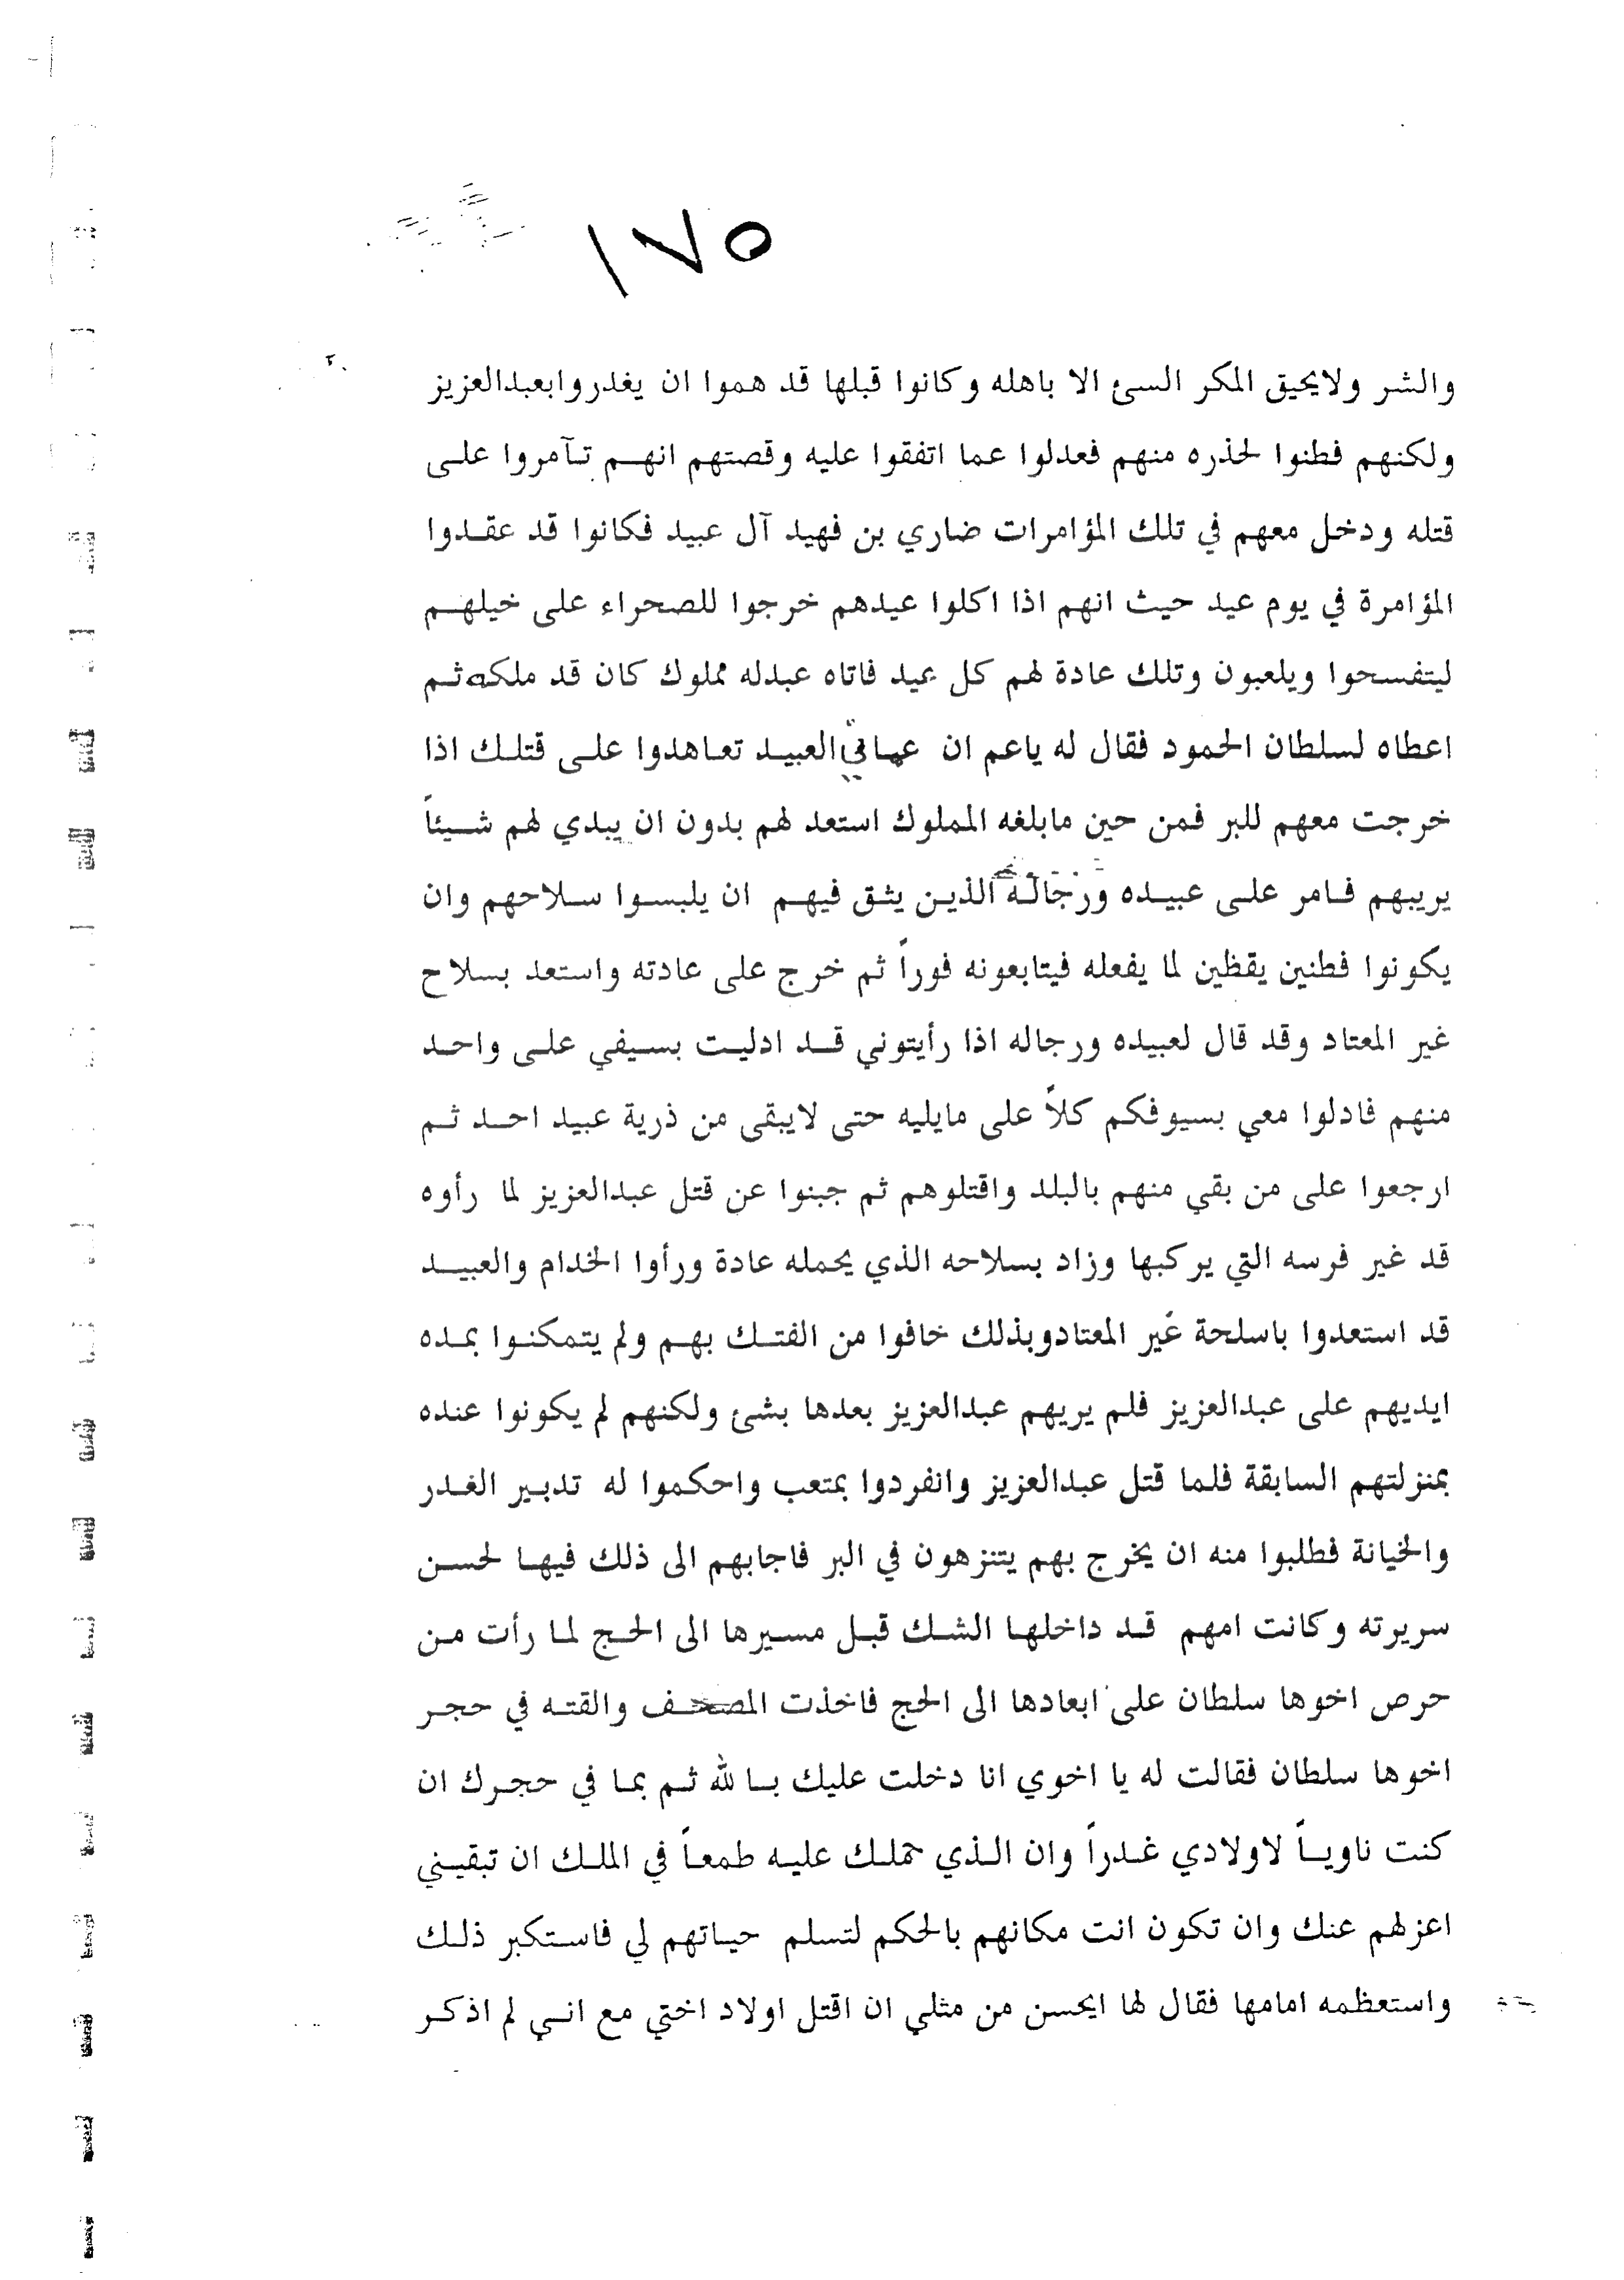 ١٧٥
والشر ولايحيق المكر السئ الا باهله وكانوا قبلها قد هموا ان يغدروابعبدالعزيز
ولكنهم فطنوا لحذره منهم فعدلوا عما اتفقوا عليه وقصتهم انهم تآمروا على
قتله ودخل معهم في تلك المؤامرات ضاري بن فهيد آل عبيد فكانوا قد عقدوا
المؤامرة في يوم عيد حيث انهم اذا اكلوا عيدهم خرجوا للصحراء على خيلهم
ليتفسحوا ويلعبون وتلك عادة لهم كل عيد فاتاه عبدله مملوك كان قد ملكه ثم
اعطاه لسلطان الحمود فقال له ياعم ان عماني العبيد تعاهدوا على قتلك اذا
خرجت معهم للبر فمن حين مابلغه المملوك استعد لهم بدون ان يبدي لهم شيئاً
يريبهم فامر على عبيده ورجاله الذين يثق فيهم ان يلبسوا سلاحهم وان
يكونوا فطنين يقظين لما يفعله فيتابعونه فوراً ثم خرج على عادته واستعد بسلاح
غير المعتاد وقد قال لعبيده ورجاله اذا رأيتوني قد ادليت بسيفي على واحد
منهم فادلوا معي بسيوفكم كلاً على مايليه حتى لايبقى من ذرية عبيد احد ثم
ارجعوا على من بقي منهم بالبلد واقتلوهم ثم جبنوا عن قتل عبدالعزيز لما رأوه
قد غير فرسه التي يركبها وزاد بسلاحه الذي يحمله عادة ورأوا الخدام والعبيد
قد استعدوا باسلحة غير المعتادوبذلك خافوا من الفتك بهم ولم يتمكنوا بمده
ايديهم على عبدالعزيز فلم يريهم عبدالعزيز بعدها بشئ ولكنهم لم يكونوا عنده
بمنزلتهم السابقة فلما قتل عبدالعزيز وانفردوا بمتعب واحكموا له تدبير الغدر
والخيانة فطلبوا منه ان يخرج بهم يتنزهون في البر فاجابهم الى ذلك فيها لحسن
سريرته وكانت امهم قد داخلها الشك قبل مسيرها الى الحج لما رأت من
حرص اخوها سلطان على ابعادها الى الحج فاخذت المصحف والقته في حجر
اخوها سلطان فقالت له يا اخوي انا دخلت عليك بالله ثم بما في حجرك ان
كنت ناوياً لاولادي غدراً وان الذي حملك عليه طمعاً في الملك ان تبقيني
اعزلهم عنك وان تكون انت مكانهم بالحكم لتسلم حياتهم لي فاستكبر ذلك
واستعظمه امامها فقال لها ايحسن من مثلي ان اقتل اولاد اختي مع اني لم اذكر